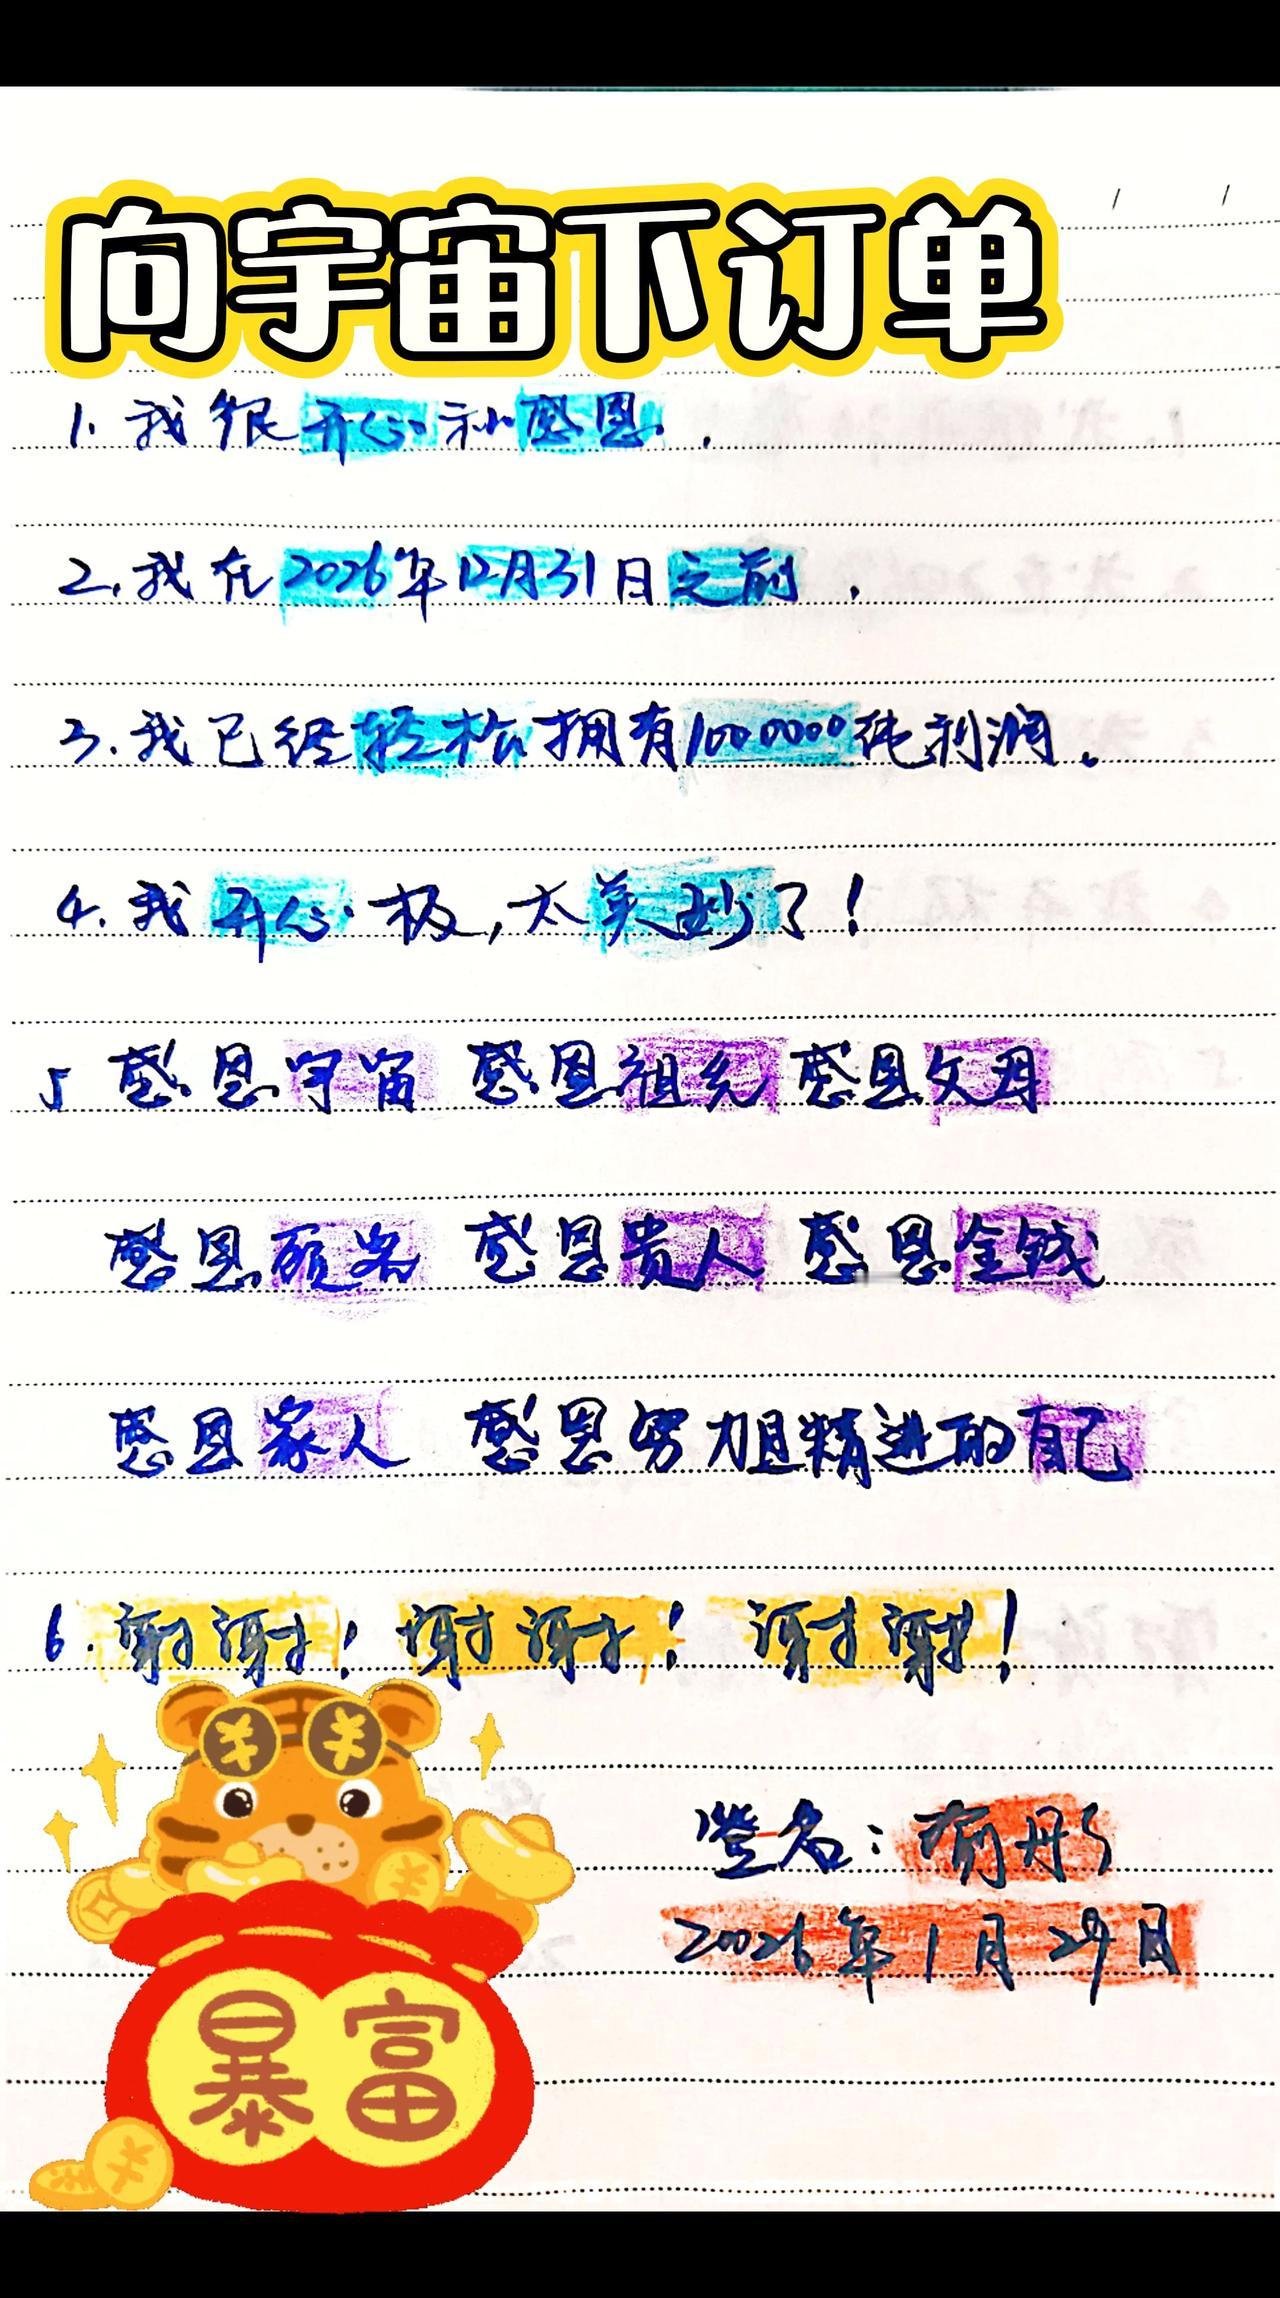 向宇宙下订单
1. 我很开心和感恩.
2. 我在2026年12月31日之前.
3. 我已经轻松拥有1000000纯利润。
4. 我开心极,太美妙了!
5 感恩宇宙 感恩祖先 感恩父母
感恩顾客 感恩贵人 感恩金钱
感恩家人 感恩努力且精进的自己
6. 谢谢! 谢谢! 谢谢!
签名:俞彤
2026年1月29日
暴富